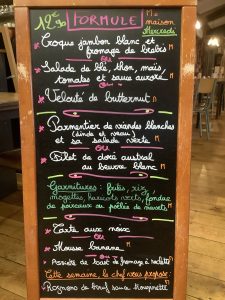 12€90 FORMULE M = maison
Mercredi
* Croque jambon blanc et
fromage de brebis M
ou
* Salade de blé, thon, maïs,
tomates et sauce aurore M
ou
* Velouté de butternut M
* Parmentier de viandes blanches
(dinde et veau)
et sa salade verte M
ou
* Filet de dore austral
au beurre blanc M
Garnitures : frites, riz,
mogettes, haricots verts, fondue
de poireaux ou poêlée de navets M
* Tarte aux noix M
ou
* Mousse banane M
ou
* Assiette de fromage à raclette
Cette semaine le chef vous propose :
Rognons de bœuf sauce